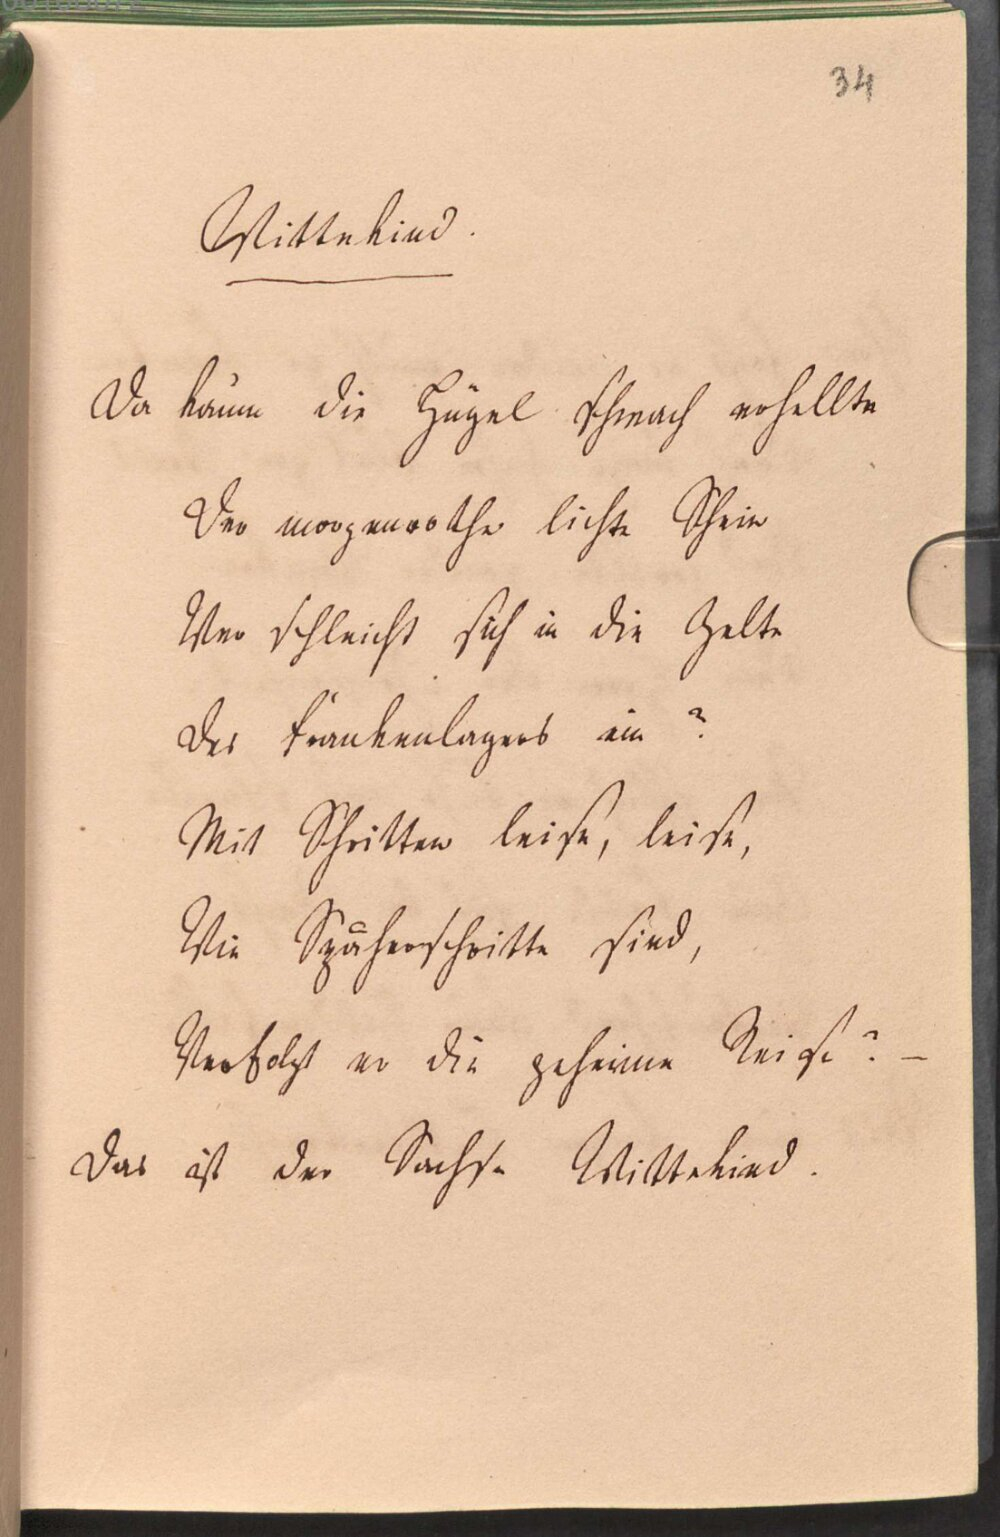 34
Wittekind.
Da kaum die Hügel schwach erhellte
Der morgenrothe lichte Schein
Wer schleicht sich in die Zelte
Des Frankenlagers ein?
Mit Schritten leise, leise,
Wie Späherschritte sind,
Verfolgt er die geheime Reise? –
Das ist der Sachse Wittekind.